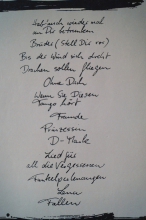 Ich auch wieder mal
an Dir betrunken
Bruder (Stell Dir vor)
Bis der Wind sich dreht
Drachen sollen fliegen
Ohne Dich
Wenn Sie Diesen
Tango hört
Freunde
Prinzessin
D-Mark
Lied für
all die Vergessenen
Funkelperlenaugen
Lena
Fallen